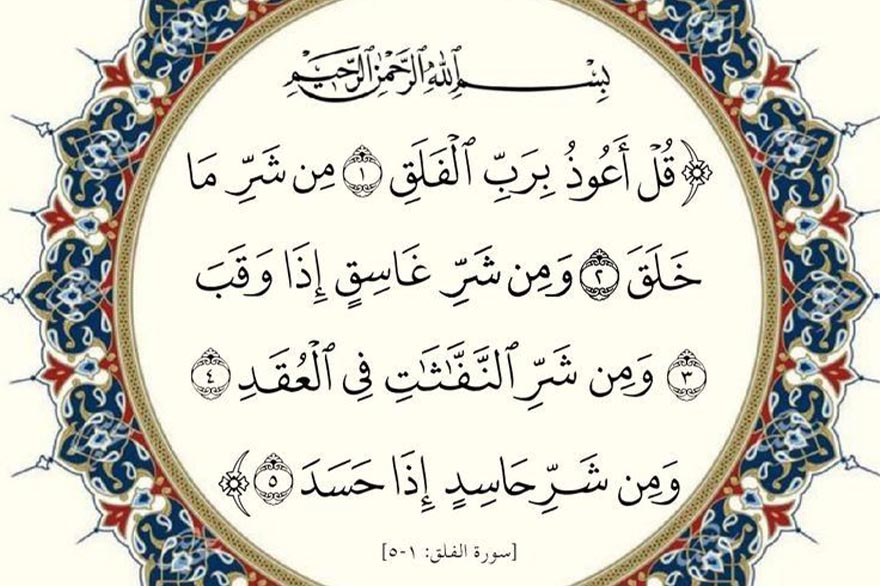 بِسْمِ ٱللَّهِ ٱلرَّحْمَٰنِ ٱلرَّحِيمِ
﴿قُلْ أَعُوذُ بِرَبِّ ٱلْفَلَقِ ١ مِن شَرِّ مَا
خَلَقَ ٢ وَمِن شَرِّ غَاسِقٍ إِذَا وَقَبَ
٣ وَمِن شَرِّ ٱلنَّفَّٰثَٰتِ فِي ٱلْعُقَدِ ٤
وَمِن شَرِّ حَاسِدٍ إِذَا حَسَدَ ٥﴾
[سورة الفلق: ١-٥]